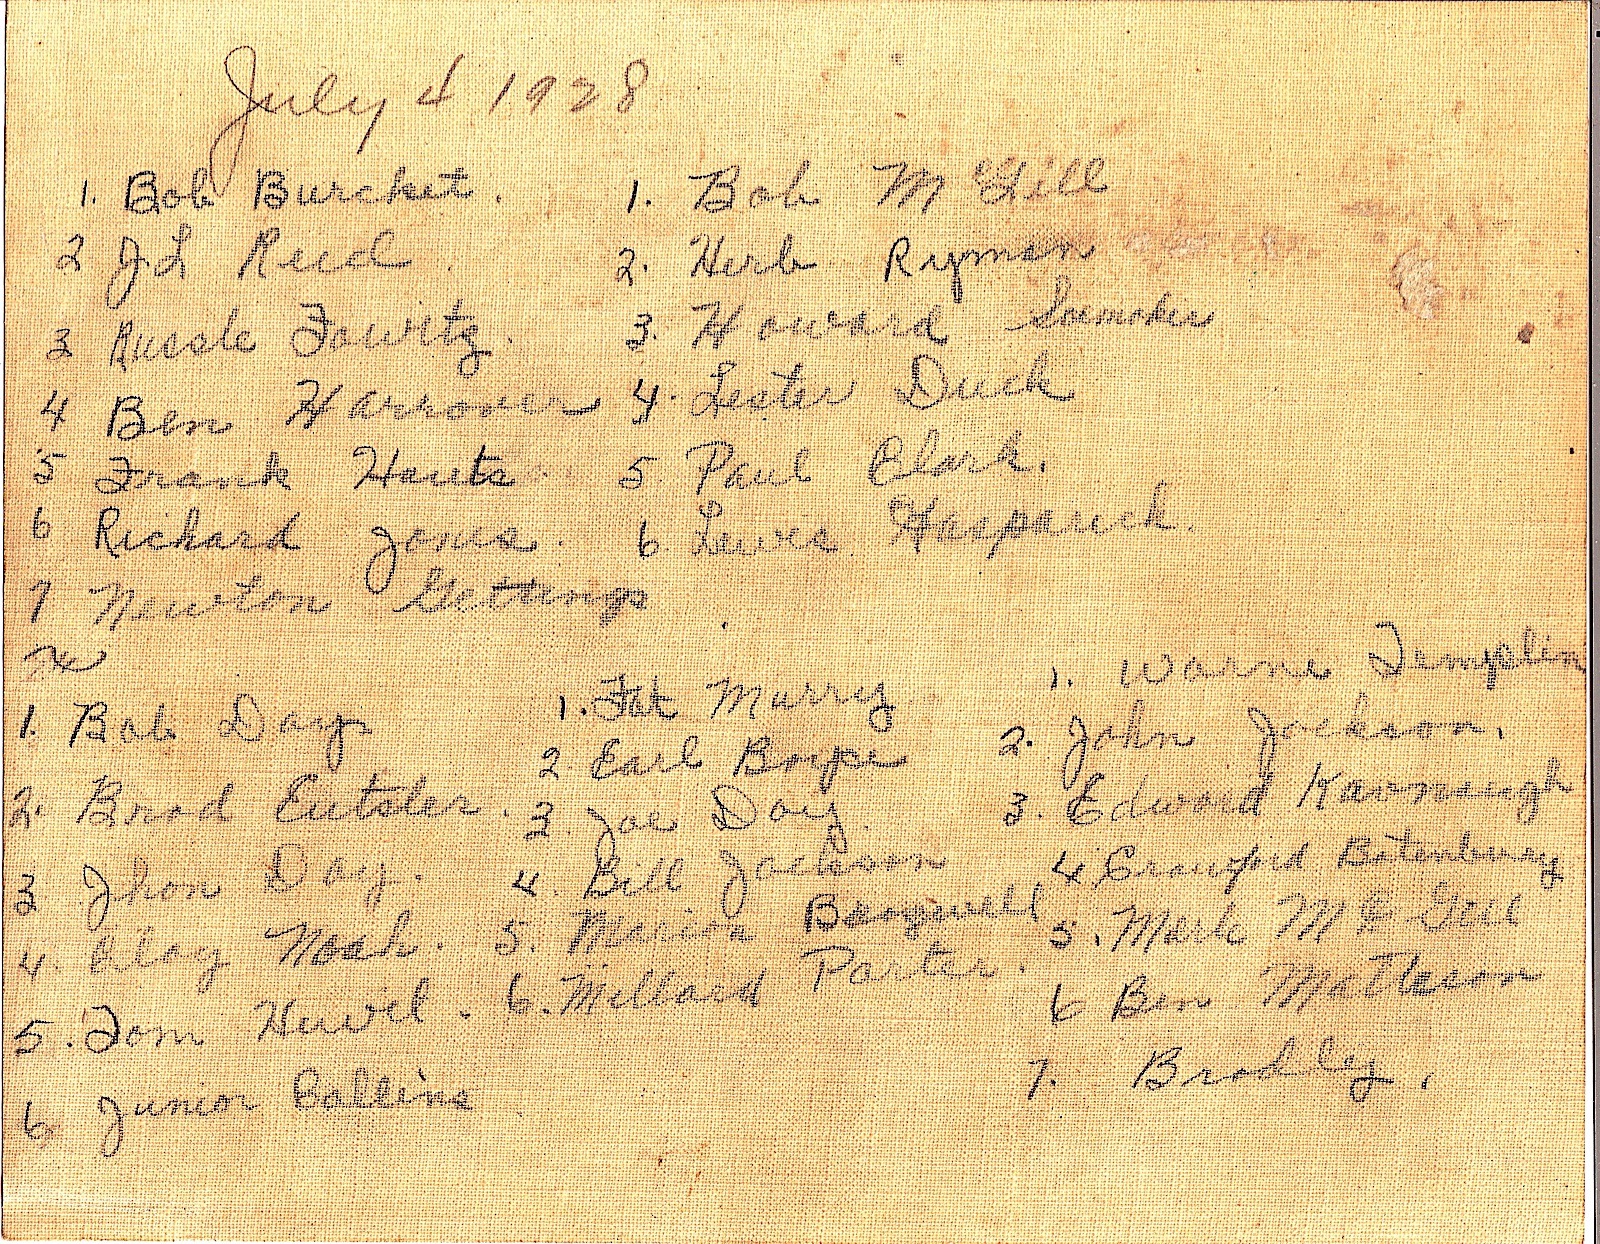 July 4 1928
1. Bob Burcket.
2 J L Reed
3 Russle Fowitz.
4 Ben Harrover
5 Frank Houts
6 Richard Jones.
7 Newton Gettings
1. Bob McGill
2. Herb Ryman
3. Howard Soemaker
4. Lester Duck
5. Paul Clark.
6. Lewis
1. Bob Day
2. Brad Eutsler.
3 Jhon Day.
4. Noah.
5. Tom Huvel.
6 Junior Collins
1. Fat Murry
2 Earl
3. Joe Day.
4. Bill Jackson
5. Marion
6. Millard Porter.
1. Warne Templin
2. John Jackson.
3. Edward Kavnaugh
4 Crawford
5. Merle McGill
6 Ben Matteson
7. Bradley.